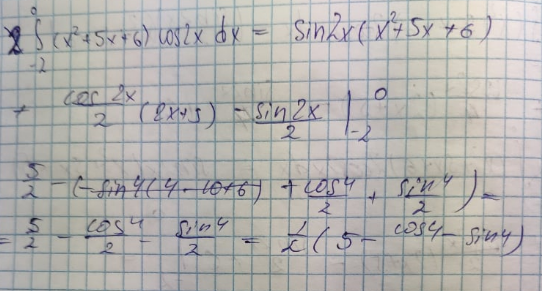 2 ∫₋₂⁰ (x²+5x+6) cos2x dx = sin2x (x²+5x+6)
+ cos2x/2 (2x+5) - sin2x/2 |₋₂⁰
5/2 - (-sin4(4-10+6) + cos4/2 + sin4/2) =
= 5/2 - cos4/2 - sin4/2 = 1/2 (5 - cos4 - sin4)